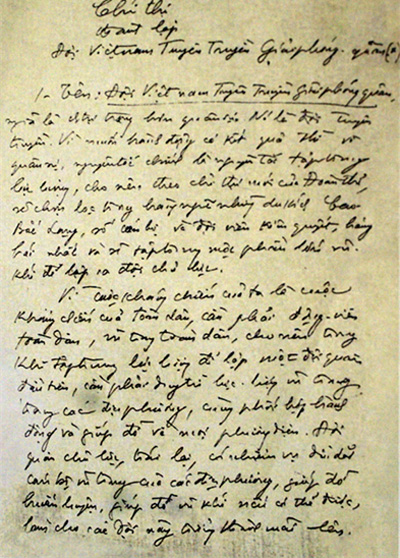 Chỉ thị
thành lập
Đội Việt nam Tuyên Truyền Giải phóng quân (x)
1- Tên: Đội Việt nam Tuyên Truyền Giải phóng quân,
nghĩa là chính trị trọng hơn quân sự. Nó là đội tuyên
truyền. Vì muốn hành động có kết quả thì về
quân sự, nguyên tắc chính là nguyên tắc tập trung
lực lượng, cho nên, theo chỉ thị mới của Đoàn thể,
sẽ chọn lọc trong hàng ngũ những du kích Cao
Bắc Lạng, số cán bộ và đội viên kiên quyết, hăng
hái nhất và sẽ tập trung một phần lớn vũ
khí để lập ra đội chủ lực.
Vì cuộc kháng chiến của ta là cuộc
kháng chiến của toàn dân, cần phải động viên
toàn dân, vũ trang toàn dân, cho nên trong
khi tập trung lực lượng để lập một đội quân
đầu tiên, cần phải duy trì lực lượng vũ trang
trong các địa phương, cùng phối hợp hành
động và giúp đỡ về mọi phương diện. Đội
quân chủ lực, trái lại, có nhiệm vụ dìu dắt
cán bộ vũ trang của các địa phương, giúp đỡ
huấn luyện, giúp đỡ vũ khí nếu có thể được,
làm cho các đội này trưởng thành mãi lên.